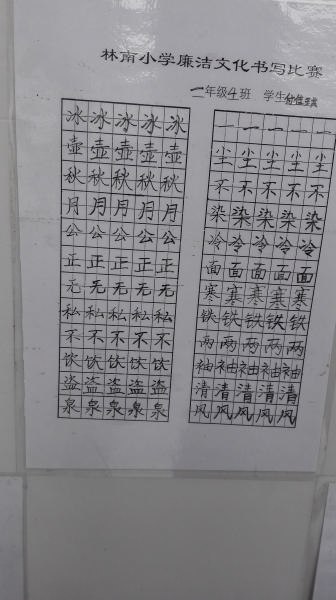 林南小学廉洁文化书写比赛
二年级4班 学生
冰冰冰冰冰
壶壶壶壶壶
秋秋秋秋秋
月月月月月
公公公公公
正正正正正
无无无无无
私私私私私
不不不不不
饮饮饮饮饮
盗盗盗盗盗
泉泉泉泉泉
一一一一一
尘尘尘尘尘
不不不不不
染染染染染
冷冷冷冷冷
面面面面面
寒寒寒寒寒
铁铁铁铁铁
两两两两两
袖袖袖袖袖
清清清清清
风风风风风